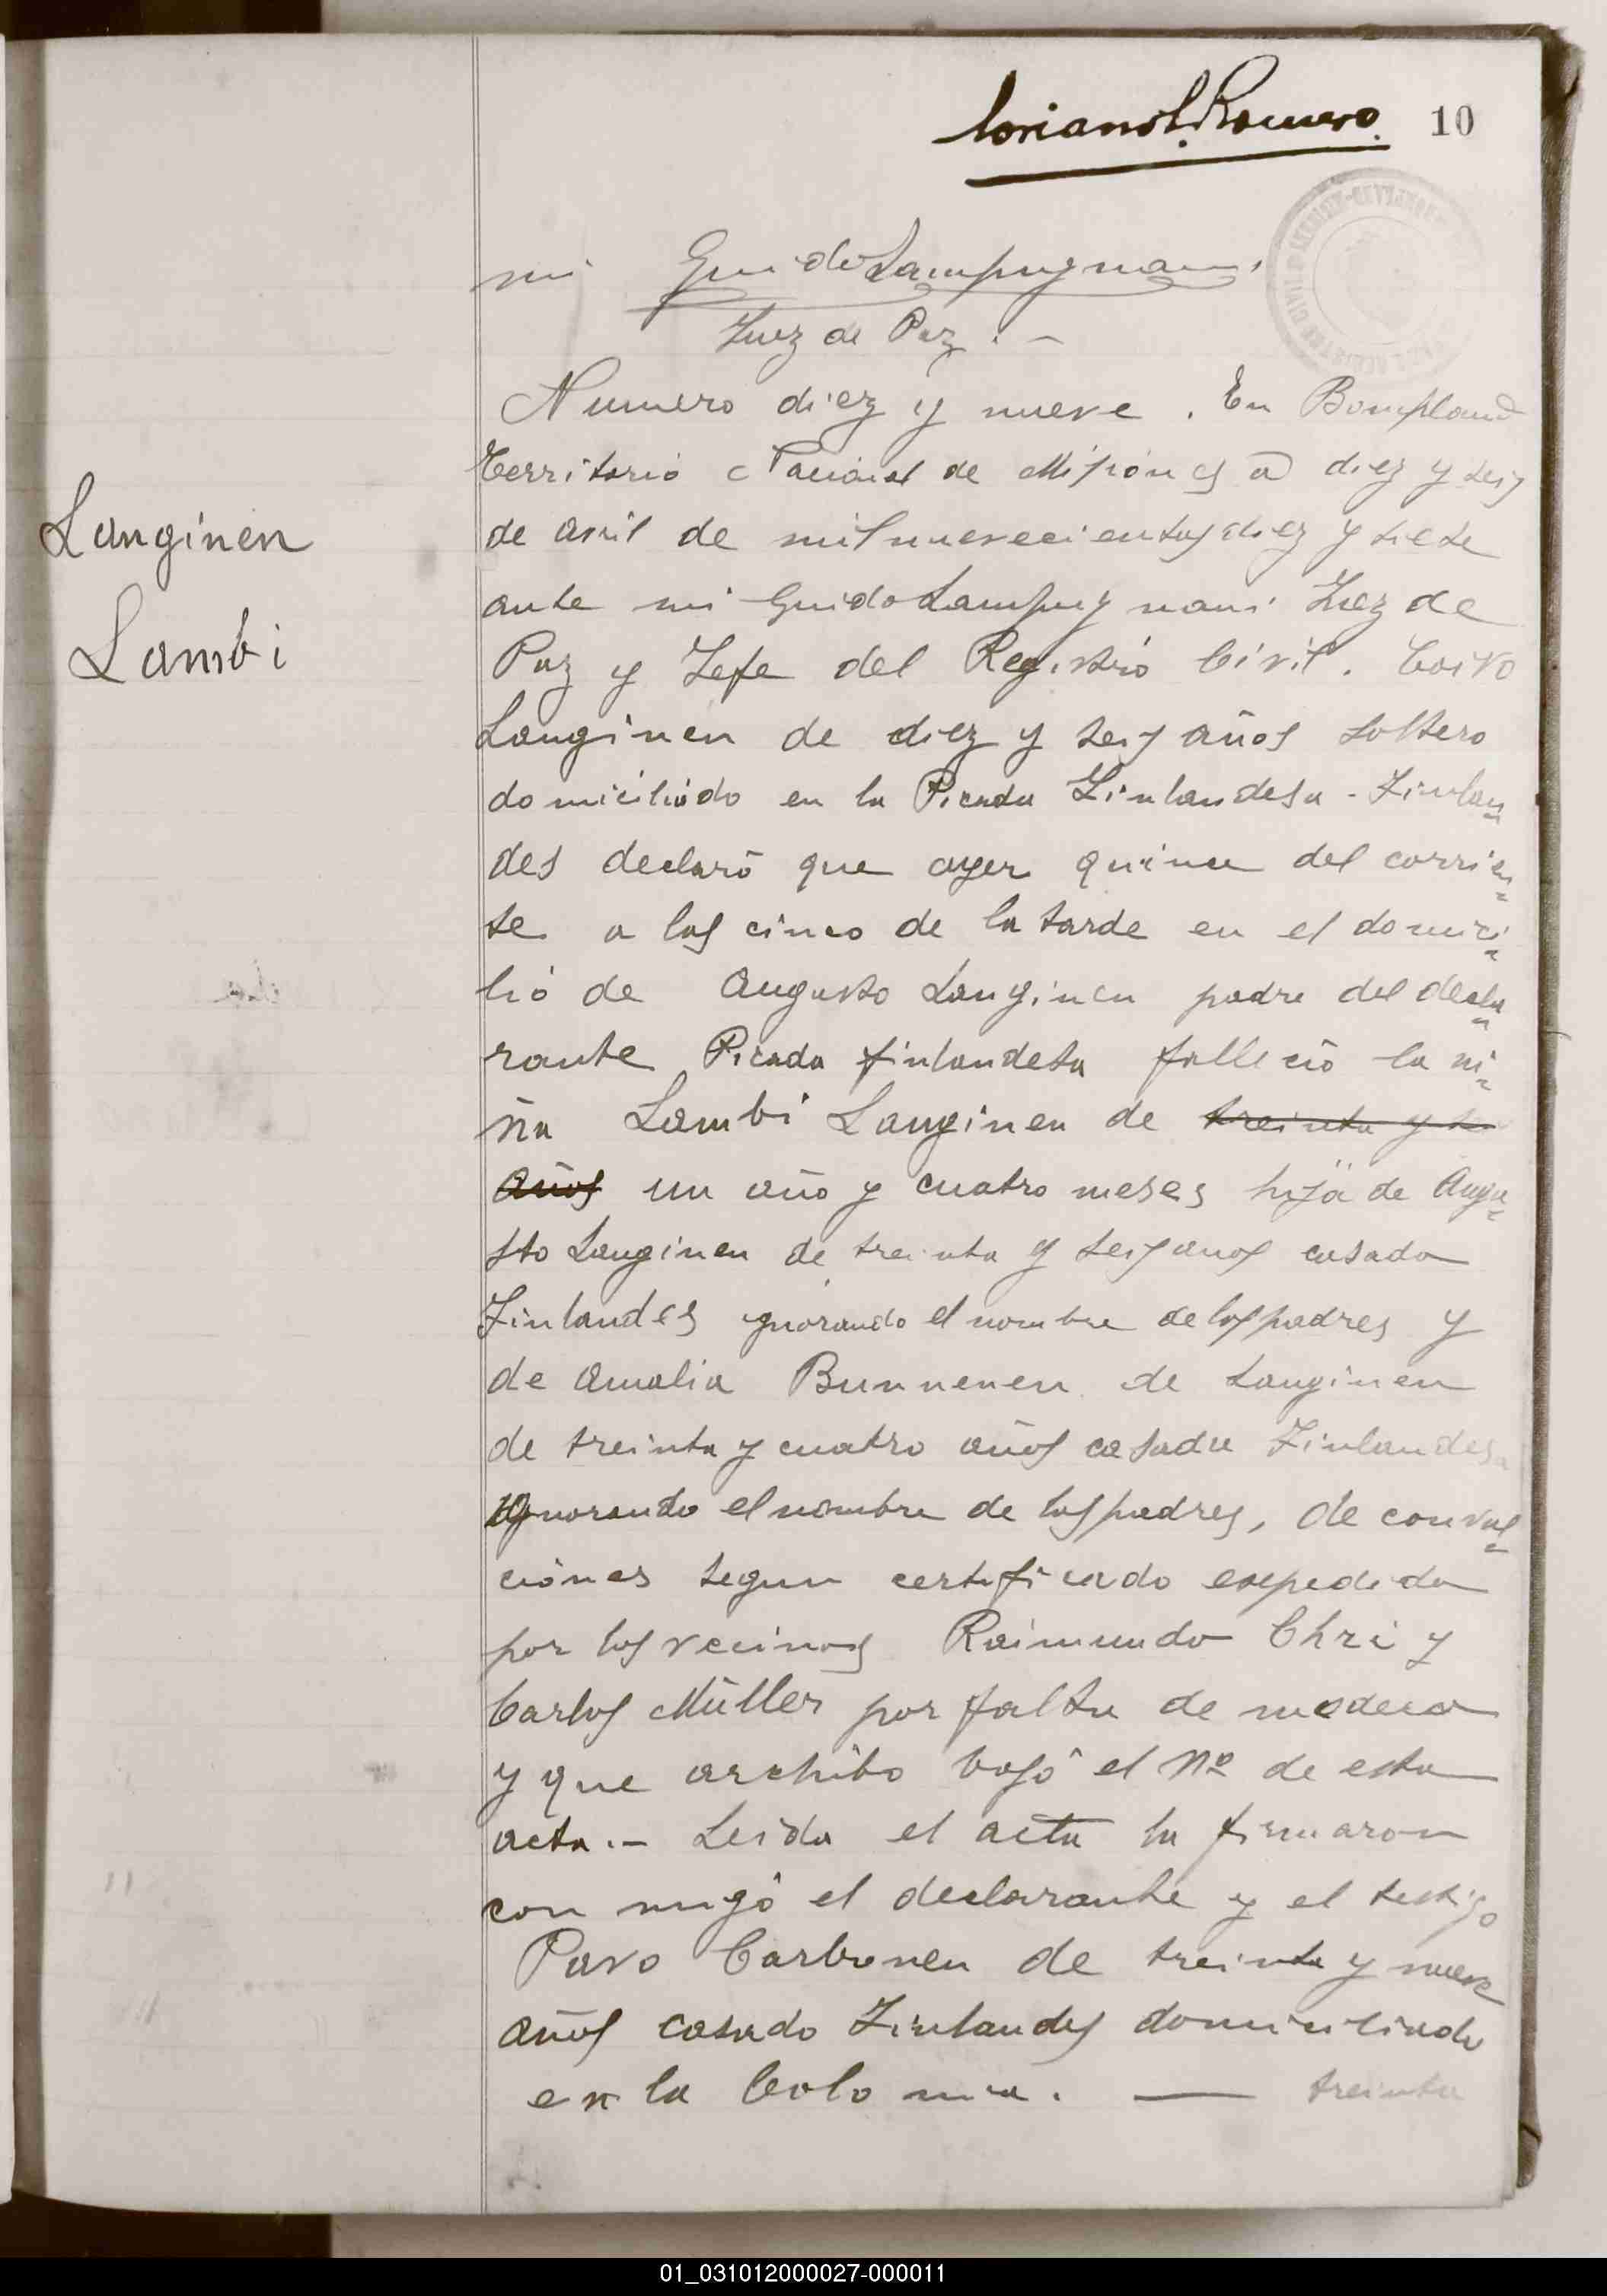 Coriano L. Romero. 10
mi Guido Lampugnani
Juez de Paz . –
Numero diez y nueve . En Bompland
Territorio Nacional de Misiónes a diez y seis
de avril de mil nuevecientos diez y siete
Langinen
ante mi Guido Lampugnani Juez de
Lambi
Paz y Jefe del Registrio Civil . Coivo
Langinen de diez y seis años soltero
domiciliado en la Picada Finlandesa - Finlan
des declaró que ayer quince del corrien
te a las cinco de la tarde en el domici
lió de Augusto Langinen padre del decla
rante Picada finlandesa falleció la ni
ña Lambi Langinen de treinta y
años un año y cuatro meses hija de Augu
sto Langinen de treinta y seis anos casado
Finlandes ignorando el nombre de los padres y
de Amalia Bunnenen de Langinen
de treinta y cuatro años casada Finlandesa
ignorando el nombre de los padres, de convul
ciónes segun certificado espedido
por los vecinos Raimundo Chri y
Carlos Müller por falta de medico
y que archibo bajó el Nº de esta
acta .– Leida el acta la firmaron
con migó el declarante y el testigo
Pavo Carbonen de treinta y nueve
años casado Finlandes domiciliado
en la Colonia . — treinta
01_031012000027-000011